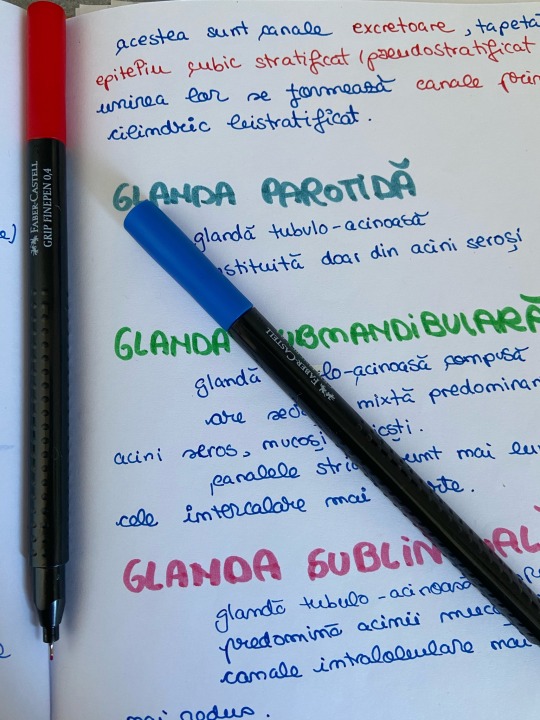 acestea sunt canale excretoare, tapetă
epiteliu cubic stratificat (pseudostratificat
unirea lor se formează canale prin
cilindric bistratificat.
GLANDA PAROTIDĂ
glandă tubulo-acinoasă
stituită doar din acini seroși
GLANDA UBMANDIBULARĂ
glandă lo-acinoasă compusă
are mixtă predominan
acini seros, mucoși icști.
canalele stri sunt mai lun
cele intercalare mai rte.
GLANDA SUBLIN ALĂ
glandă tubulo-acinoasă
predomină acinii muco
canale intralobulare mai
mai redus.
FABER-CASTELL
GRIP FINEPEN 0,4
FABER-CASTELL